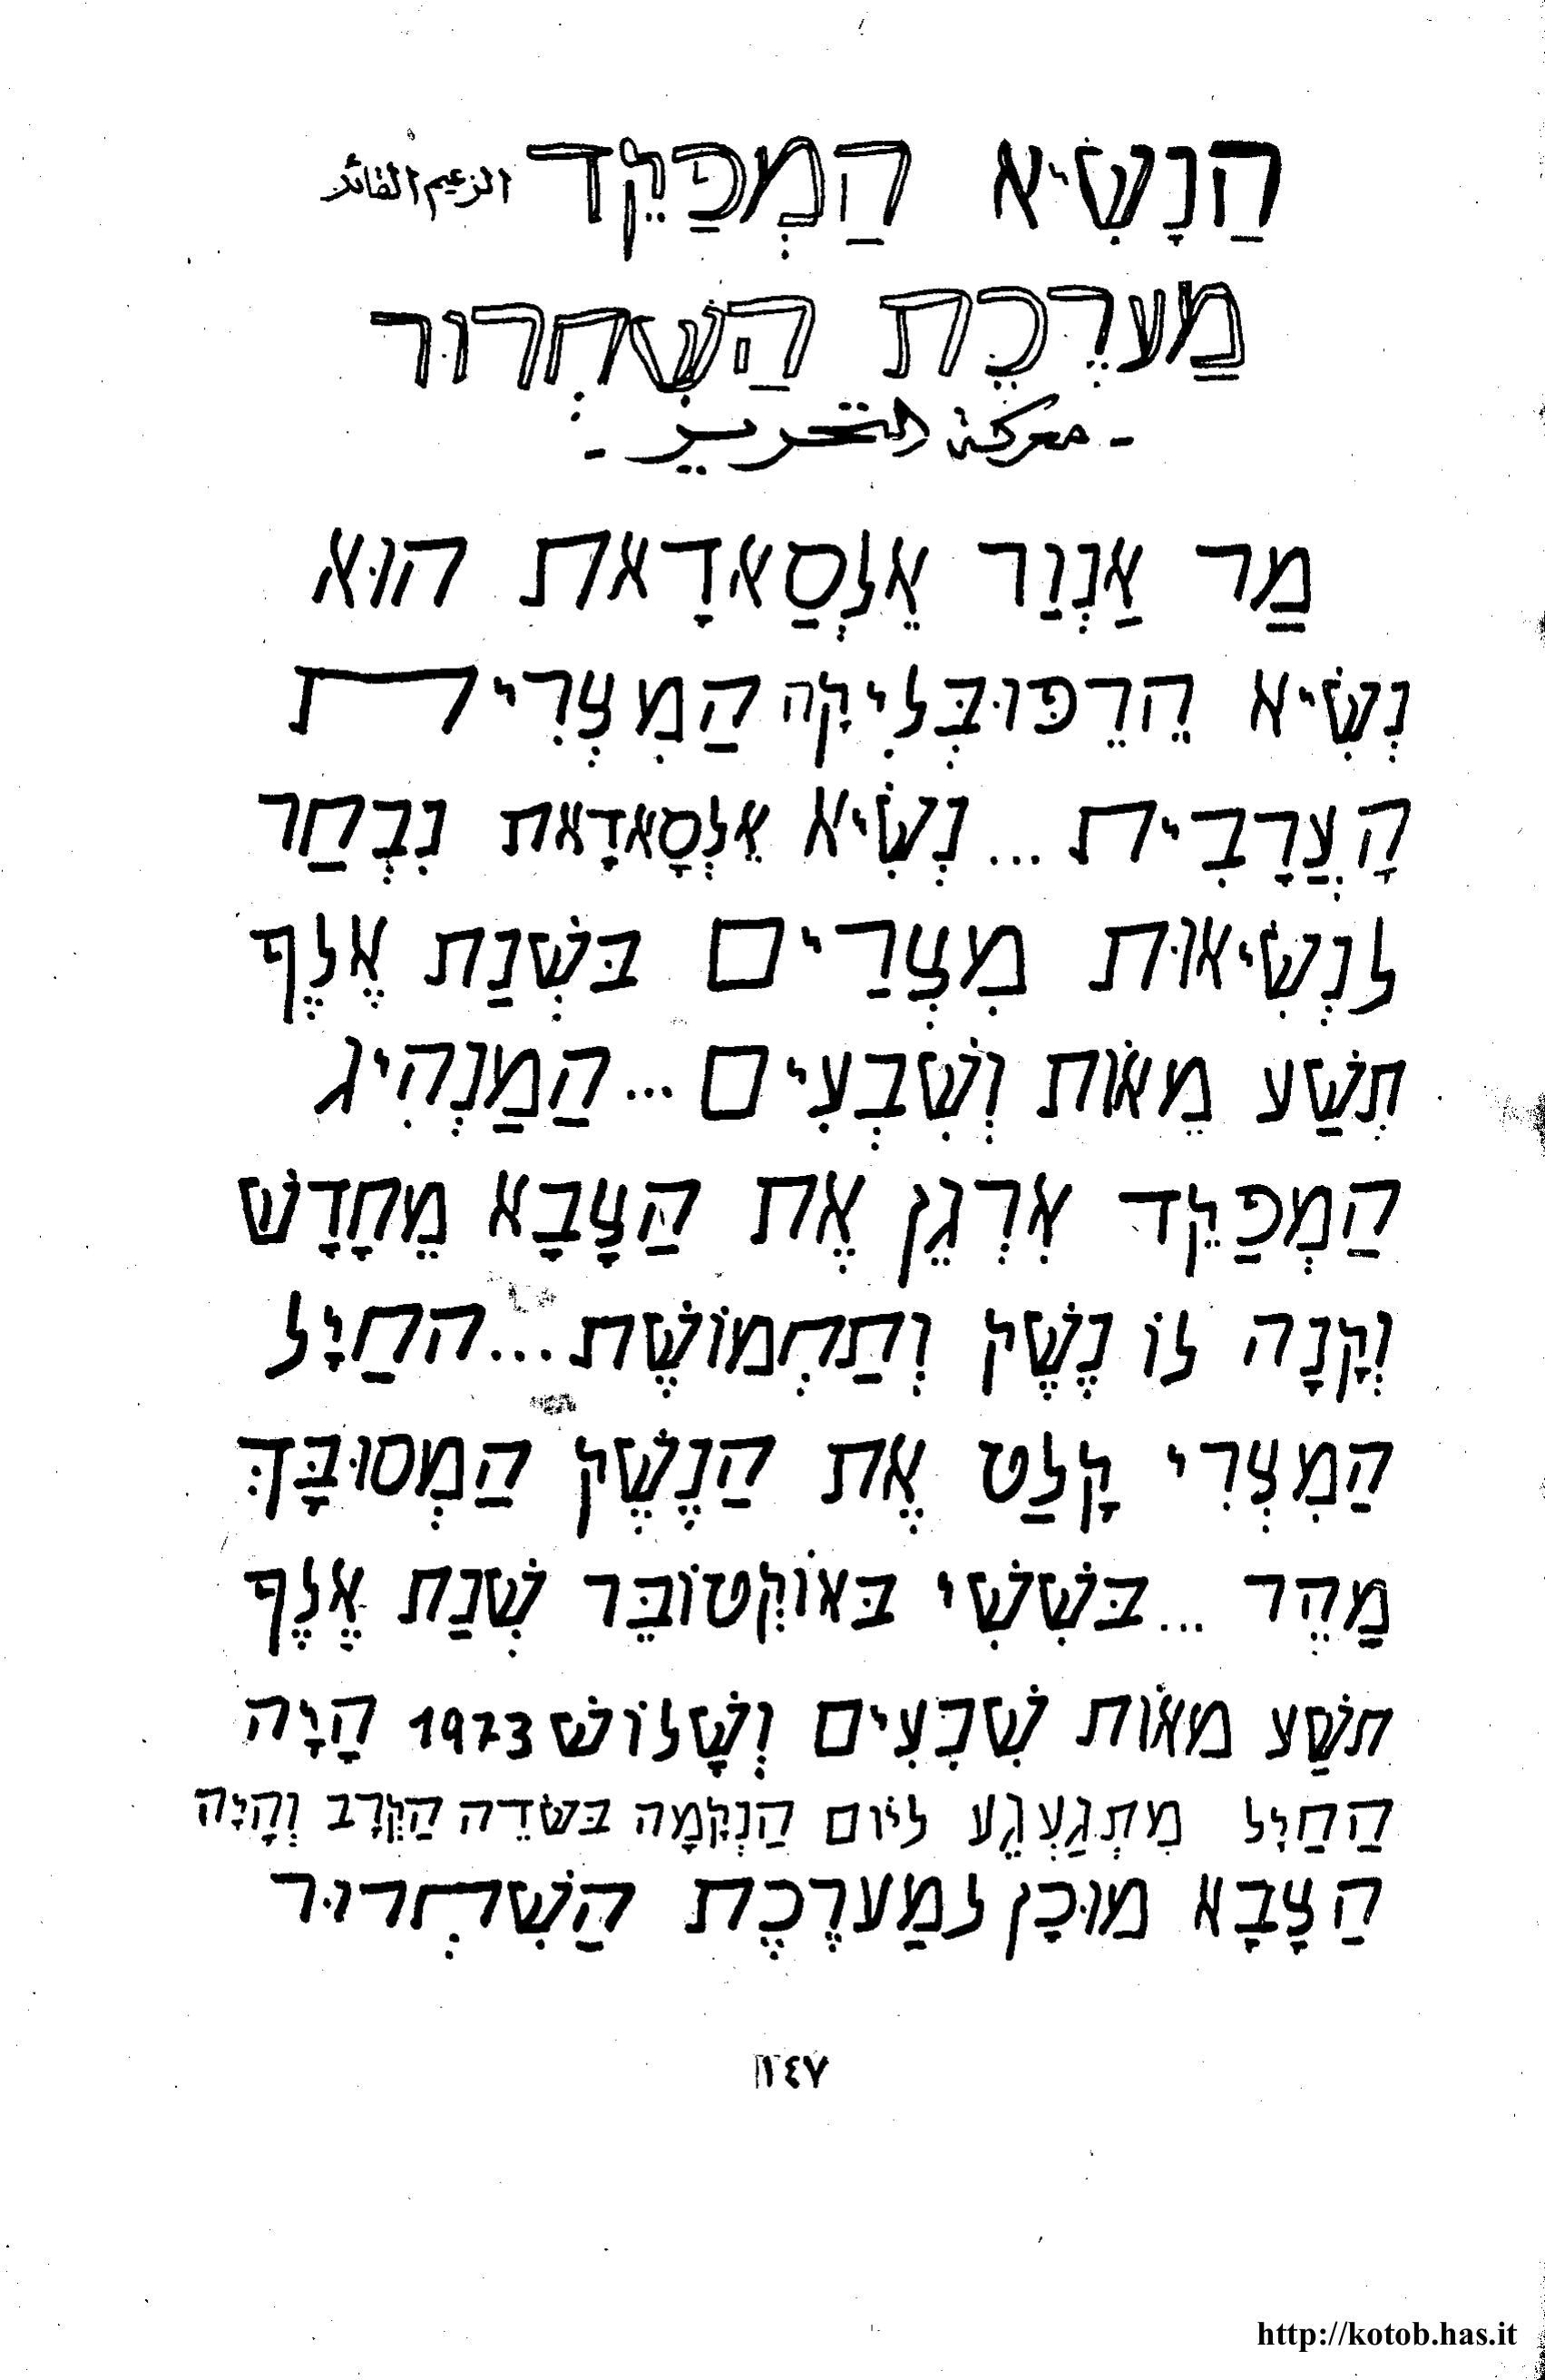 הַנָשִׂיא הַמְפַקֵד الزعيم القائد
מַעֲרֶכֶת הַשִׁחְרוּר
- معركة التحرير -
מַר אַנְוַר אֵלְסַאדָאת הוּא
נְשִׂיא הֵרֵפּוּבְּלִיקָה הַמִצְרִית
הָעֲרָבִית ... נְשִׂיא אֵלְסָאדָאת נִבְחַר
לנְשִׂיאוּת מִצְרַיִם בּשְׁנַת אֶלֶף
תְשַׁע מֵאוֹת וְשִׁבְעִים ... הַמַנְהִיג
הַמְפַקֵד אִרְגֵן אֶת הַצָבָא מֵחָדָשׁ
וְקָנָה לוֹ נֶשֶׁק וְתַחְמוֹשֶׁת ... החַיָל
הַמִצְרִי קָלַט אֶת הַנֶשֶׁק הַמְסוּבָּךְ
מַהֵר ... בּשִׁשִׁי בּאוֹקְטוֹבֵּר שְׁנַת אֶלֶף
תשַׁע מאוֹת שִׁבְעִים וְשָׁלוֹשׁ 1973 הָיָה
הַחַיָל מִתְגַעְגֵעַ ליוֹם הַנְקָמָה בּשׂדֵה הַקְרָב וְהָיָה
הַצָבָא מוּכָן למַעֲרֶכֶת הַשִׁחְרוּר
١٤٧
http://kotob.has.it